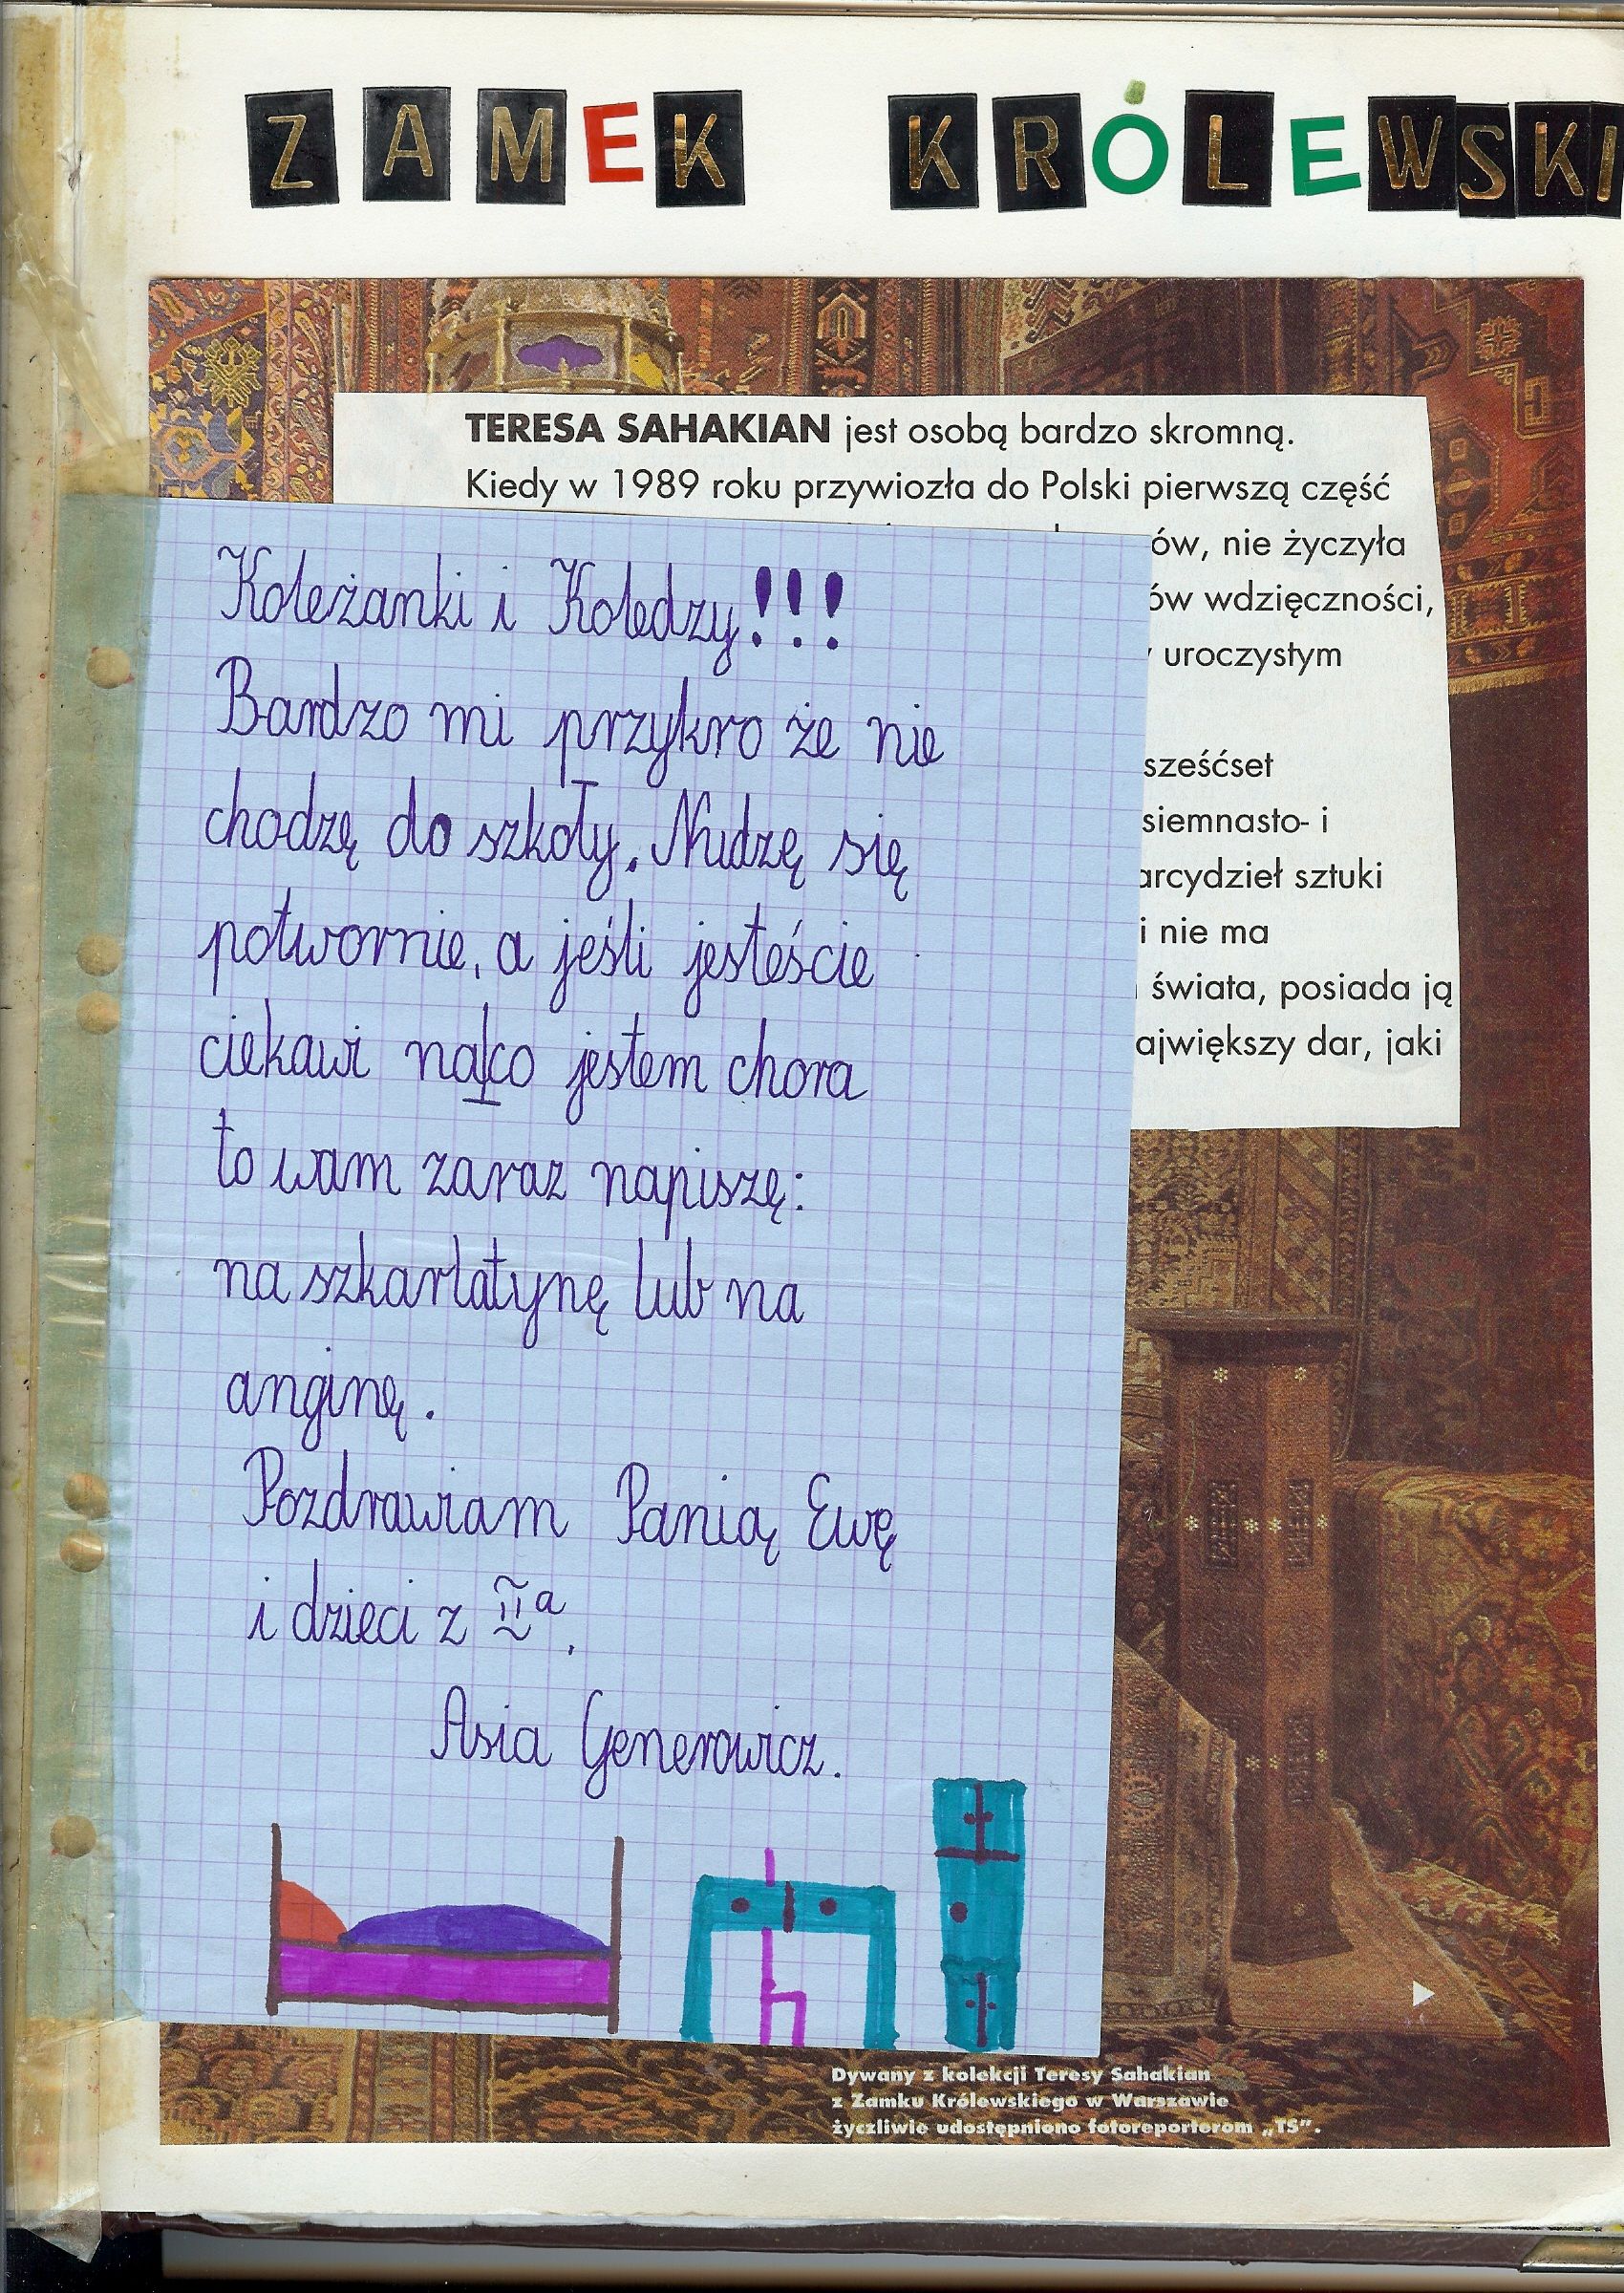 ZAMEK KRÓLEWSKI
TERESA SAHAKIAN jest osobą bardzo skromną.
Kiedy w 1989 roku przywiozła do Polski pierwszą część
ów, nie życzyła
ów wdzięczności,
uroczystym
sześćset
siemnasto- i
arcydzieł sztuki
i nie ma
świata, posiada ją
ajwiększy dar, jaki
Koleżanki i Koledzy!!!
Bardzo mi przykro że nie
chodzę do szkoły. Nudzę się
potwornie, a jeśli jesteście
ciekawi na|co jestem chora
to wam zaraz napiszę:
na szkarlatynę lub na
anginę.
Pozdrawiam Panią Ewę
i dzieci z IIa.
Asia Generowicz.
Dywany z kolekcji Teresy Sahakian
z Zamku Królewskiego w Warszawie
życzliwie udostępniono fotoreporterom „TS”.